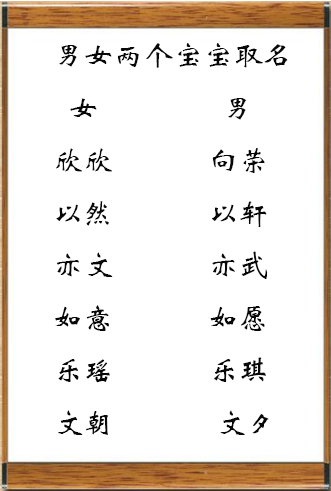 男女两个宝宝取名
女 男
欣欣 向荣
以然 以轩
亦文 亦武
如意 如愿
乐瑶 乐琪
文朝 文夕